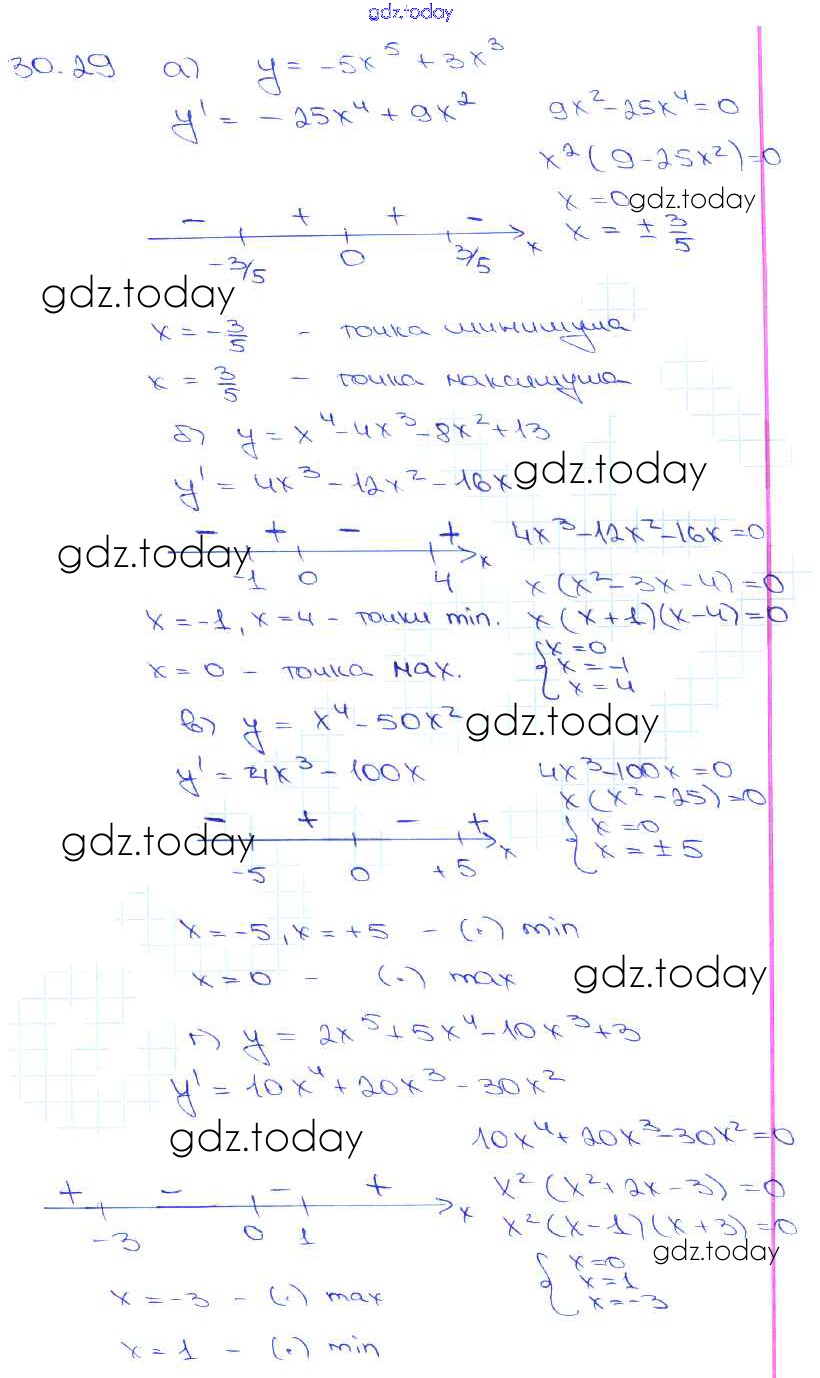 gdz.today
30.29 а) y = -5x⁵ + 3x³
y' = -25x⁴ + 9x²
9x² - 25x⁴ = 0
x²(9 - 25x²) = 0
x = 0
gdz.today
x = ± 3/5
- + + -
-3/5 0 3/5 x
gdz.today
x = -3/5 - точка минимума
x = 3/5 - точка максимума
б) y = x⁴ - 4x³ - 8x² + 13
y' = 4x³ - 12x² - 16x
gdz.today
- + - +
-1 0 4 x
gdz.today
4x³ - 12x² - 16x = 0
x(x² - 3x - 4) = 0
x = -1, x = 4 - точки min.
x(x + 1)(x - 4) = 0
x = 0
x = -1
x = 4
x = 0 - точка мах.
в) y = x⁴ - 50x²
gdz.today
y' = 4x³ - 100x
4x³ - 100x = 0
x(x² - 25) = 0
x = 0
x = ± 5
- + - +
-5 0 +5 x
gdz.today
x = -5, x = +5 - (.) min
x = 0 - (.) max
gdz.today
г) y = 2x⁵ + 5x⁴ - 10x³ + 3
y' = 10x⁴ + 20x³ - 30x²
gdz.today
10x⁴ + 20x³ - 30x² = 0
x²(x² + 2x - 3) = 0
x²(x - 1)(x + 3) = 0
gdz.today
x = 0
x = 1
x = -3
+ - - +
-3 0 1 x
x = -3 - (.) max
x = 1 - (.) min